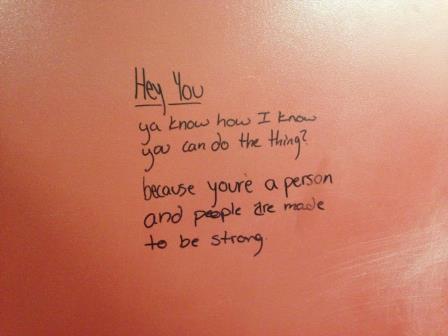 Hey You
ya know how I know
you can do the thing?
because you're a person
and people are made
to be strong.